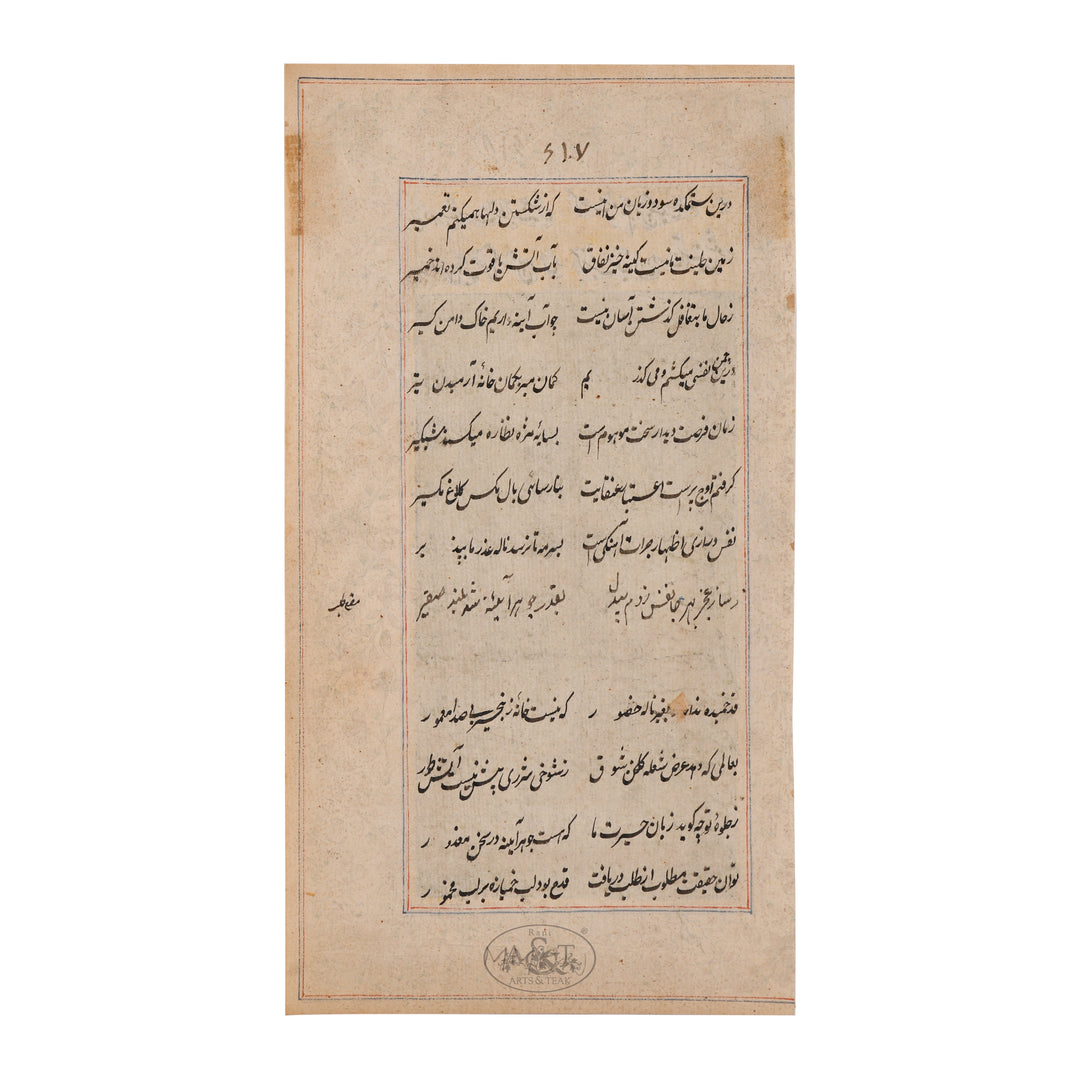 ۶۱۰۷
درین ستمکده سود و زیان من اینست که از شکستن دلها همیکنم تعمیر
زمین طینت ما نیست کینه خیز نفاق بآب آتش یاقوت کرده اند خمیر
ز حال ما بتغافل گذشتن آسان نیست چو آب آینه داریم خاک دامن گیر
درین چمن نفسی میکشم و می گذریم کمان مبر بکمان خانهٔ آرمیدن تیر
زمان فرصت دیدار سخت موهوم است بسایهٔ مژه نظاره میکند شبگیر
گرفتم اوج پرست اعتبار عنقایت بنارسائی بال مگس کلاغ مگیر
نفس درازی اظهار جرات آهنگی است بسرمه تا نرسد ناله عذر ما بپذیر
ز ساز عجز بهر جا نفس زدم بیدل بقدر جوهر آیینه شد بلند صفیر
قد خمیده ندارد بغیر ناله حضور که نیست خانهٔ زنجیر بی صدا معمور
بعالمی که دهد عرض شعله گلخن شوق ز شوخی شرری بیش نیست آتش طور
ز جلوهٔ تو چه گوید زبان حیرت ما که هست جوهر آیینه در سخن معذور
توان حقیقت مطلوب از طلب دریافت قدح بود لب خمیازه بر لب مخمور
Rani
M A & T
ARTS & TEAK